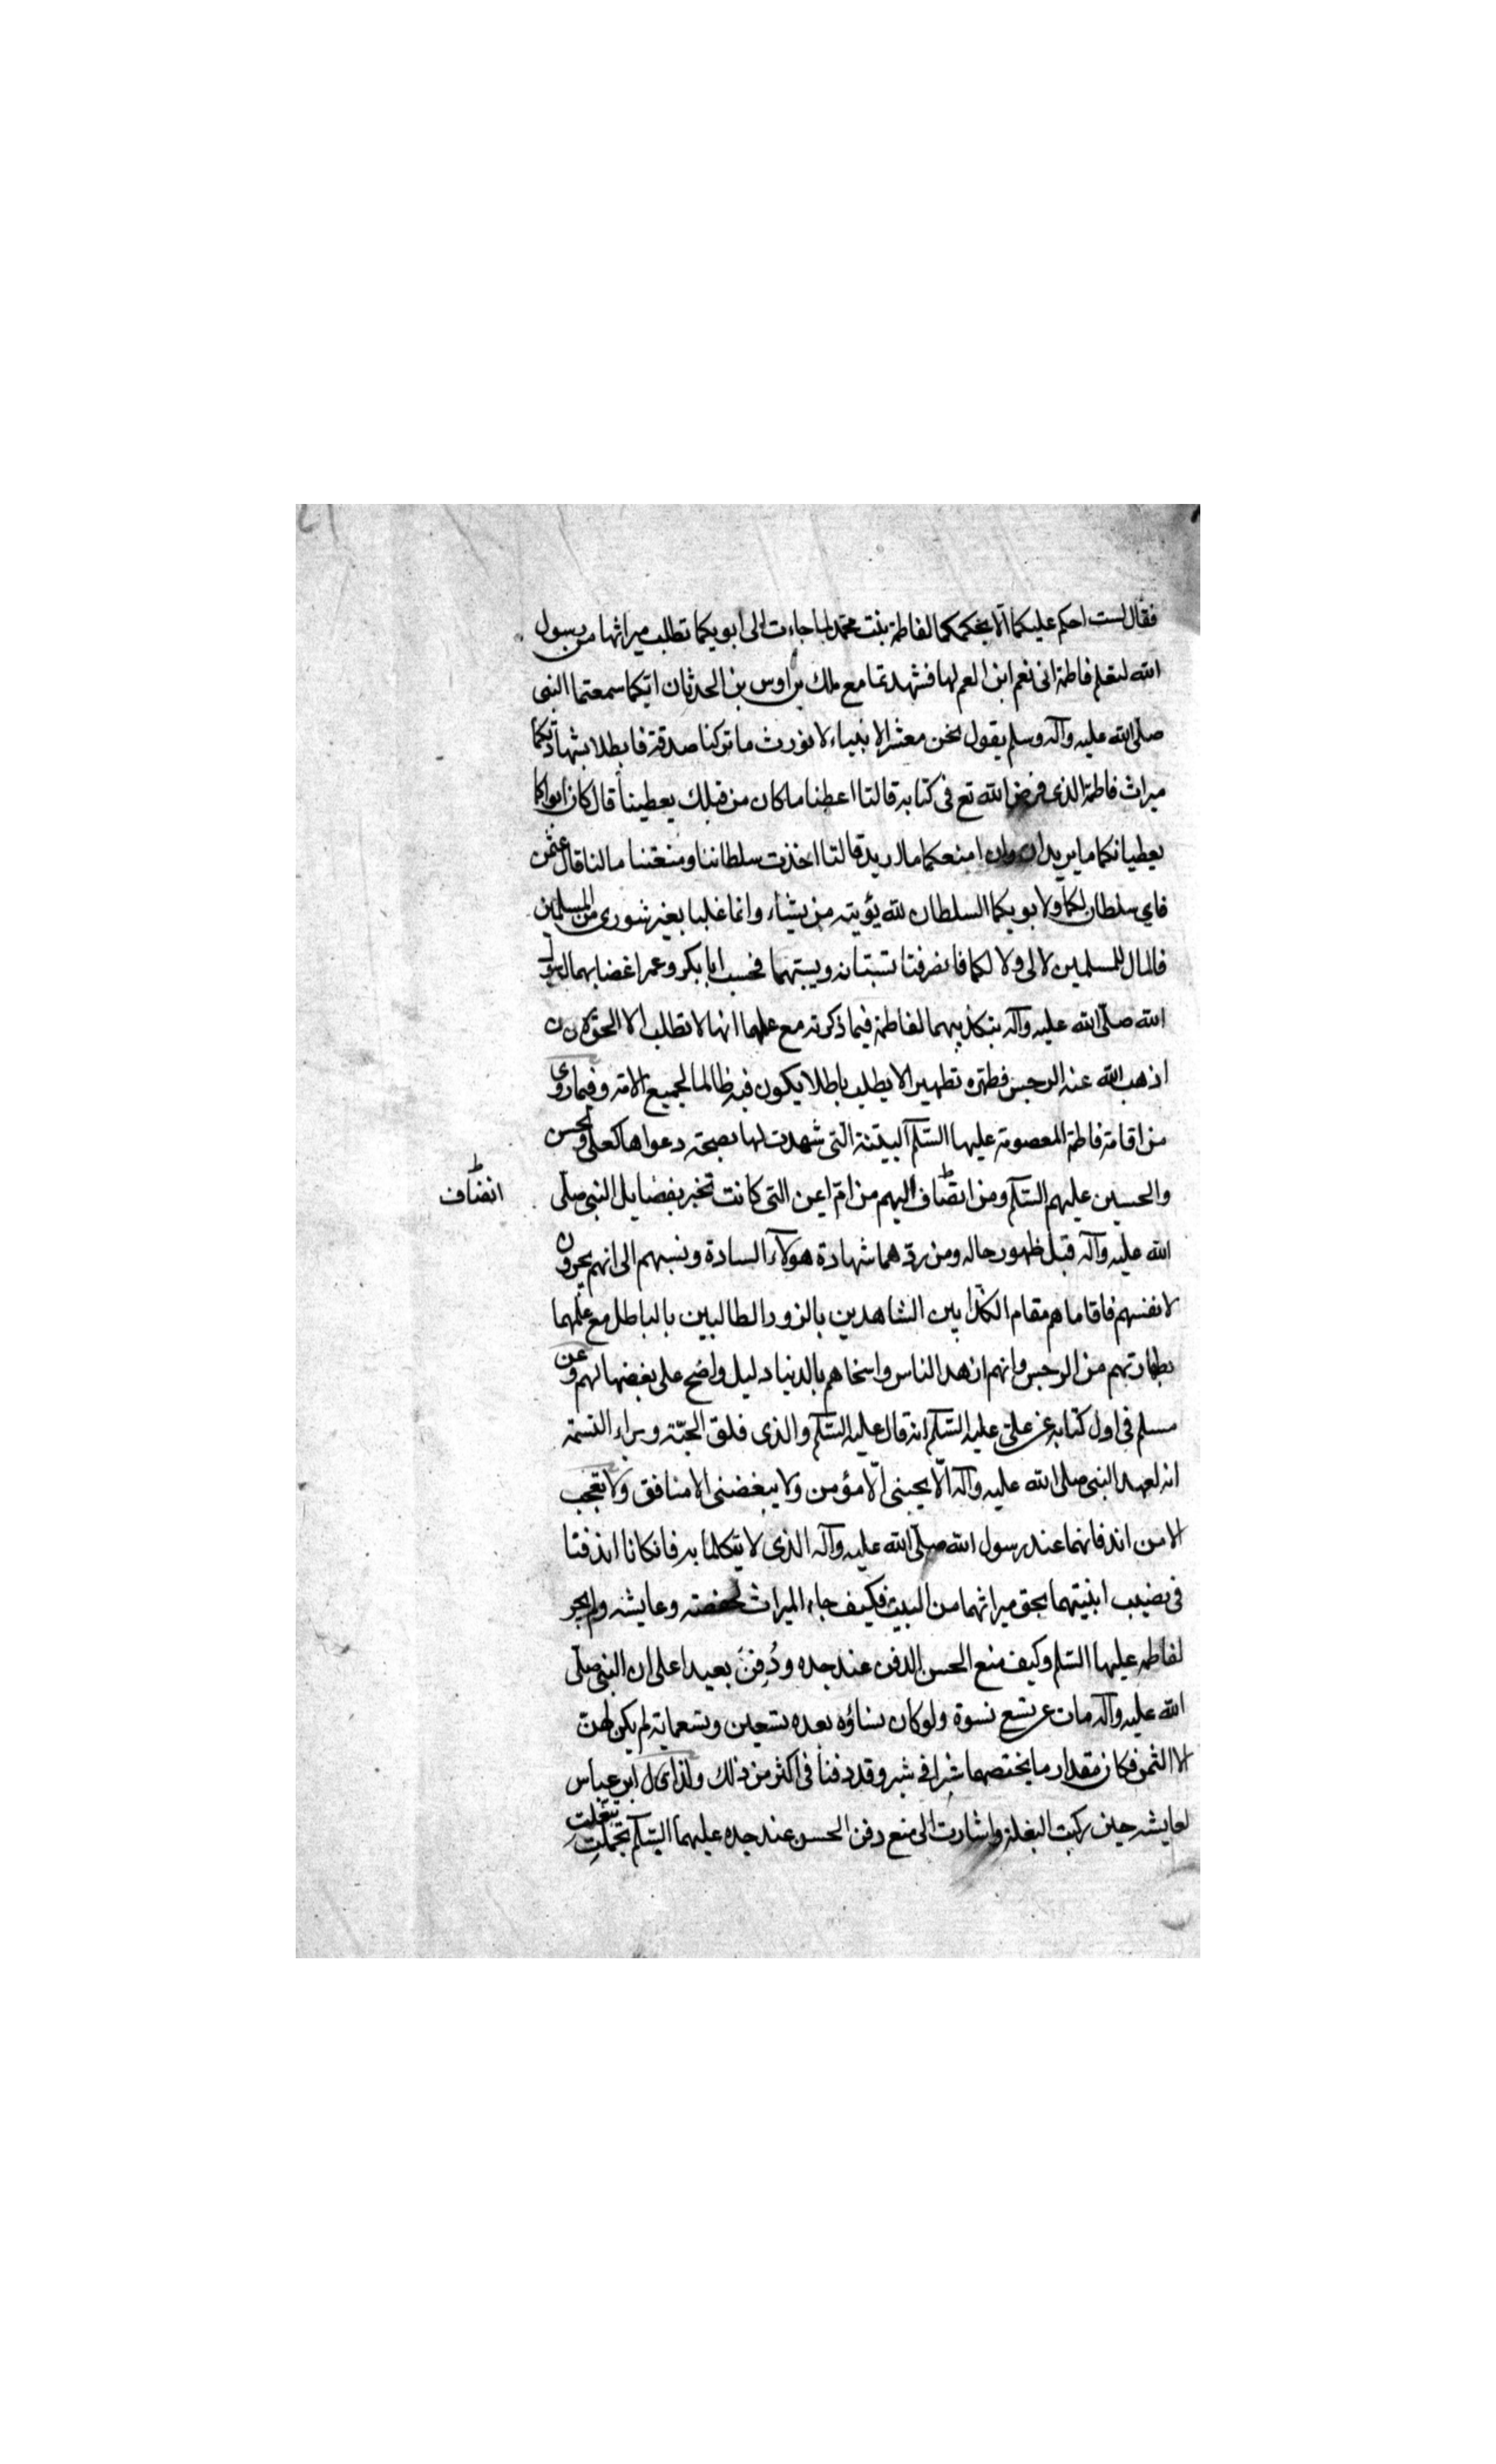 فقال لست احكم عليكما الا بحكمكما لفاطمة بنت محمد لما جاءت الى ابويكما تطلب ميراثها من رسول
الله فاطمة انى نعم ابن العم لها فشهدتما مع ملك بن اوس بن الحدثان انكما سمعتما النبى
صلى الله عليه وآله وسلم يقول نحن معشر الانبياء لا نورث ما تركنا صدقة فابطلا بشهادتكما
ميراث فاطمة الذى فرض الله تع فى كتابه قالتا اعطنا ما كان من قبلك يعطينا قال كان ابواكما
يعطيانكما ما يريدان وان امنعكما ما اريد قالتا اخذت سلطاننا ومنعتنا مالنا قال عثمن
فاي سلطان لكما ولابويكما السلطان لله يؤيته من يشاء وانما غلبا بغير شورى من المسلمين
فالمال للمسلمين لا لى ولا لكما فانصرفتا تسبتانه ويسبهما فحسب ابا بكر وعمر اغضابهما لرسول
الله صلى الله عليه وآله بتكذيبهما لفاطمة فيما ذكرته مع علمهما انها لا تطلب الا الحق
اذهب الله عنه الرجس فطهره تطهيرا لا يطلب باطلا يكون فيه ظالما لجميع الامة وفيما روى
من اقامة فاطمة المعصومة عليها السلم البينة التى شهدت لها بصحة دعواها كعلى والحسن
والحسين عليهم السلم ومن انضاف اليهم من ام ايمن التى كانت تخبر بفضايل النبى صلى
انضاف
الله عليه وآله قبل ظهور حاله ومن ردهما شهادة هولاء السادة ونسبهم الى انهم يجرون
لانفسهم فاقاماهم مقام الكذابين الشاهدين بالزور الطالبين بالباطل مع علمهما
بطهارتهم من الرجس وانهم ازهد الناس واسخاهم بالدنيا دليل واضح على بغضهما لهم وعن
مسلم فى اول كتابه عن على عليه السلم انه قال عليه السلم والذى فلق الحبة وبراء النسمة
انه لعهد النبى صلى الله عليه وآله الا يحبنى الا مؤمن ولا يبغضنى الا منافق ولا تعجب
الا من اندفانهما عند رسول الله صلى الله عليه وآله الذى لا يتكلما به فان كانا اندفنا
فى نصيب ابنتيهما بحق ميراثهما من البيت فكيف جاء الميراث لحفصة وعايشه ولم يجز
لفاطمه عليها السلم وكيف منع الحسن الدفن عند جده ودُفِنَ بعيدا على ان النبى صلى
الله عليه وآله مات عن تسع نسوة ولو كان نساؤه بعده تسعين وتسعماية لم يكن لهن
الا الثمن فكان مقدار ما يختصهما شبرا فى شبر وقد دفنا فى اكثر من ذلك ولذا قال ابن عباس
لعايشه حين ركبت البغلة واشارت الى منع دفن الحسن عند جده عليهما السلم تجملتِ تبغلتِ